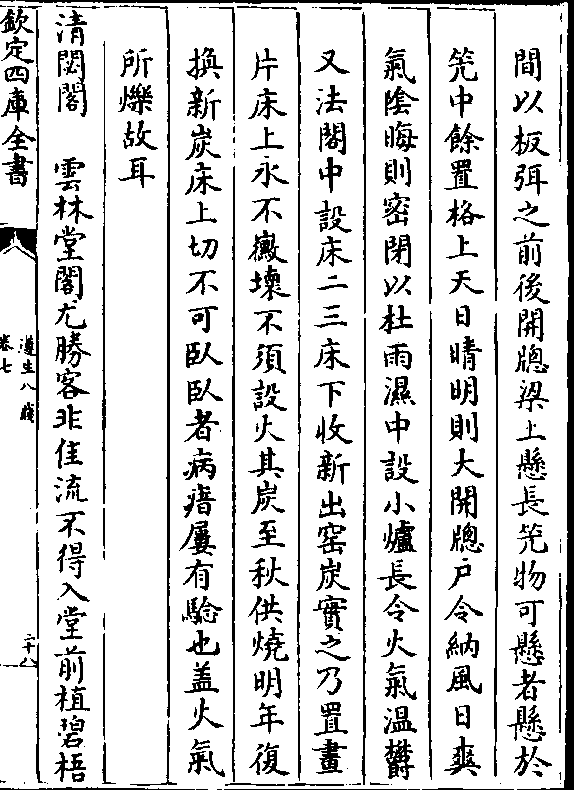 間以板弭之前後開牕梁上懸長笐物可懸者懸於
笐中餘置格上天日晴明則大開牕户令納風日爽
氣隂晦則密閉以杜雨濕中設小爐長令火氣温欝
又法閣中設床二三床下收新出窑炭實之乃置畫
片床上永不黴壞不須設火其炭至秋供燒明年復
換新炭床上切不可臥臥者病瘖屢有驗也盖火氣
所爍故耳
清閟閣　雲林堂閣尤勝客非佳流不得入堂前植碧梧
欽定四庫全書
遵生八牋
卷七
二十八